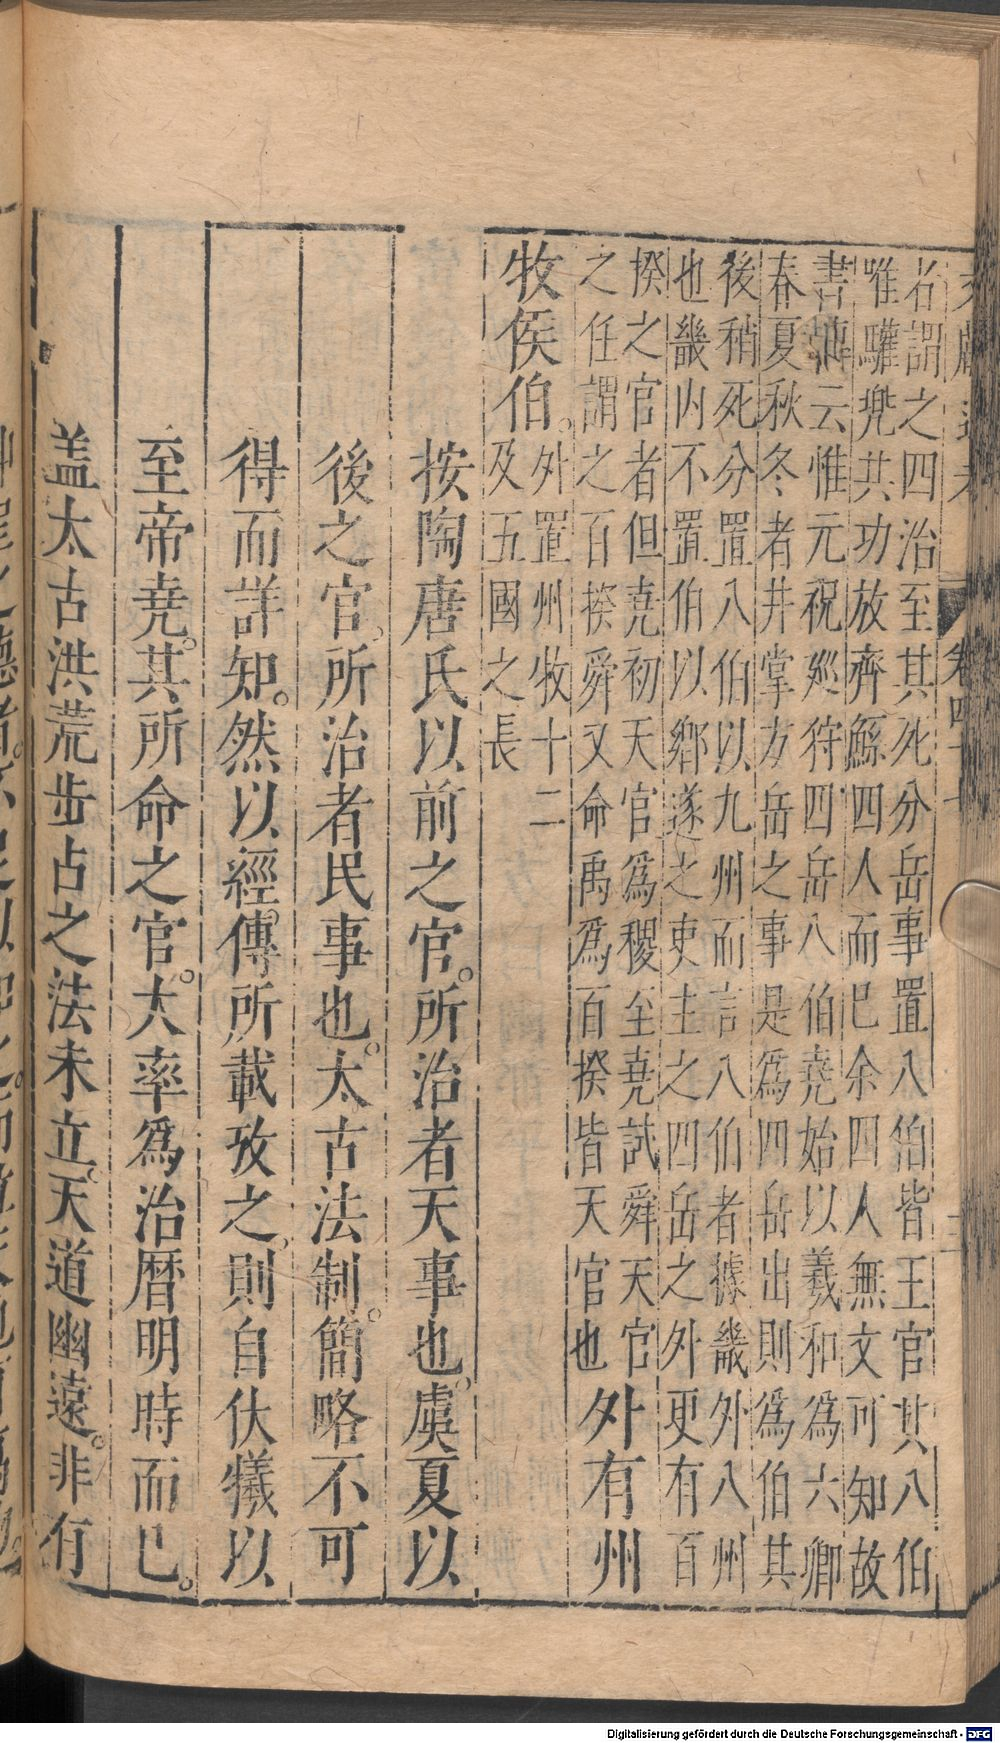 卷四十
名謂之四治至其死分岳事置八伯皆王官其八伯
唯驩兜共功放齊鯀四人而巳余四人無文可知故
書傳云惟元祝廵狩四岳八伯堯始以羲和為六卿
春夏秋冬者并掌方岳之事是爲四岳出則爲伯其
後稍死分置八伯以九州而言八伯者據畿外八州
也畿内不置伯以鄉遂之吏主之四岳之外更有百
揆之官者但堯初天官爲稷至堯試舜天官
之任謂之百揆舜又命禹爲百揆皆天官也
外有州
牧侯伯。
外置州牧十二
及五國之長
按陶唐氏以前之官。所治者天事也。虞夏以
後之官。所治者民事也。太古法制。簡略不可
得而詳知。然以經傳所載攷之。則自伏犧以
至帝堯。其所命之官。大率爲治曆明時而已。
盖太古洪荒步占之法未立。天道幽遠。非有
Digitalisierung gefördert durch die Deutsche Forschungsgemeinschaft - DFG